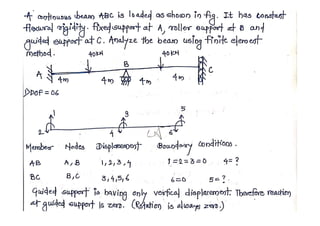 A continuous beam ABC is loaded as shown in fig. It has constant
flexural rigidity. fixed support at A, roller support at B and
guided support at C. Analyze the beam using finite element
method.
40KN 40KN
A B C
4m 4m 4m 4m
DOF = 06
1 3 5
2 4 6
Member Nodes Displacement Boundary conditions.
AB A, B 1, 2, 3, 4 1 = 2 = 3 = 0 4 = ?
BC B, C 3, 4, 5, 6 6 = 0 5 = ?
Guided support is having only vertical displacement. Therefore reaction
at guided support is zero. (Rotation is always zero.)